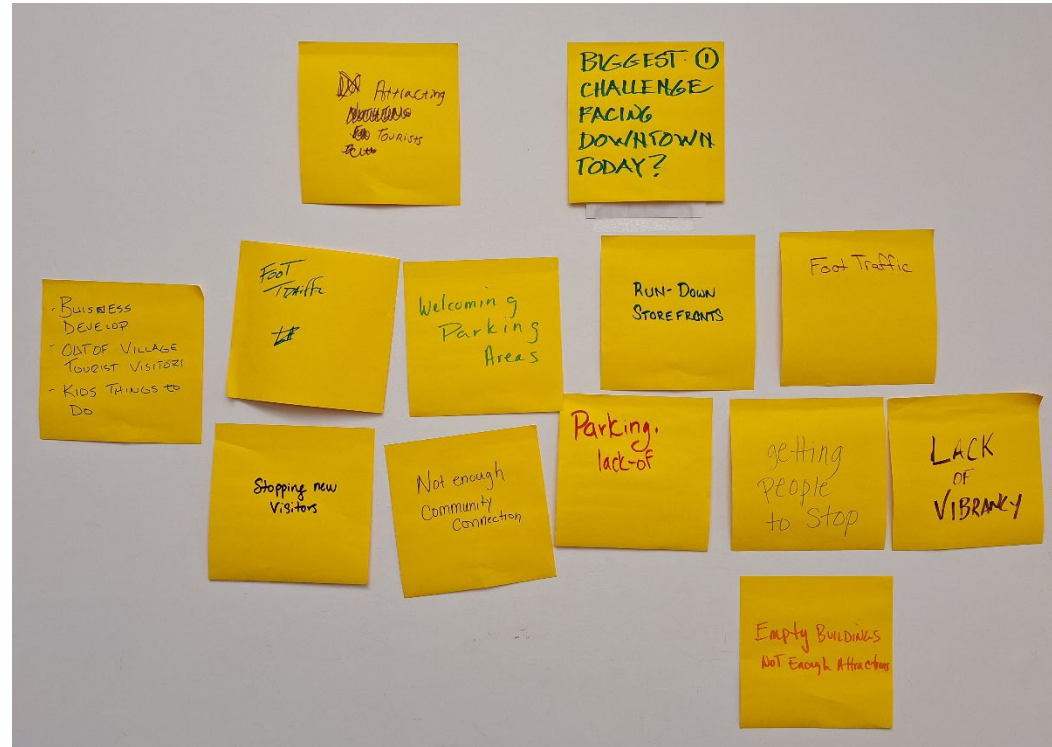 Attracting
Tourists
BIGGEST ①
CHALLENGE
FACING
DOWNTOWN
TODAY?
- BUISNESS
DEVELOP
- OUT OF VILLAGE
TOURIST VISITORS
- KIDS THINGS to
DO
FOOT
Welcoming
Parking
Areas
RUN-DOWN
STOREFRONTS
Foot Traffic
Stopping new
Visitors
Not enough
Community
Connection
Parking.
lack-of
getting
People
to Stop
LACK
OF
VIBRANCY
Empty BUILDINGS
NOT Enough Attractions